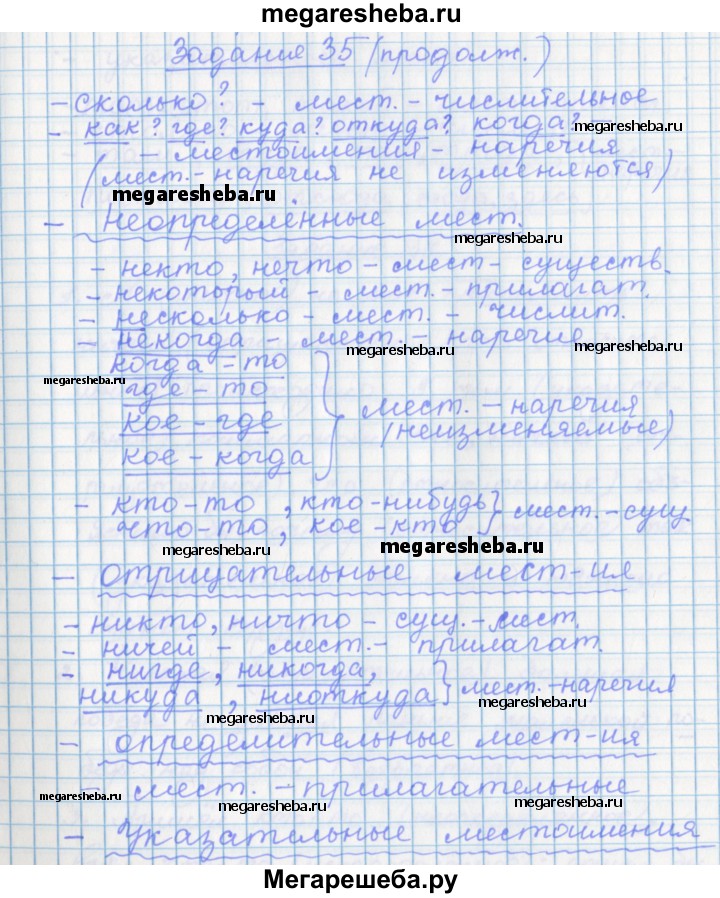 megaresheba.ru
Задание 35 (продолж.)
- сколько? - мест. - числительное
- как? где? куда? откуда? когда? -
- местоимения - наречия
(мест. - наречия не изменяются)
megaresheba.ru
- Неопределённые мест.
megaresheba.ru
- некто, нечто - мест - существ.
- некоторый - мест. - прилагат.
- несколько - мест. - числит.
- некогда - мест. - наречие
megaresheba.ru
megaresheba.ru
когда - то
megaresheba.ru
где - то
кое - где
кое - когда
мест. - наречия
(неизменяемые)
- кто-то, кто-нибудь
что-то, кое-кто
мест. - сущ.
megaresheba.ru
megaresheba.ru
- отрицательные мест-ия
- никто, ничто - сущ. - мест.
- ничей - мест. - прилагат.
- нигде, никогда,
никуда, ниоткуда
мест. - наречия
megaresheba.ru
megaresheba.ru
- определительные мест-ия
- мест. - прилагательные
megaresheba.ru
megaresheba.ru
megaresheba.ru
- Указательные местоимения
Мегарешеба.ру